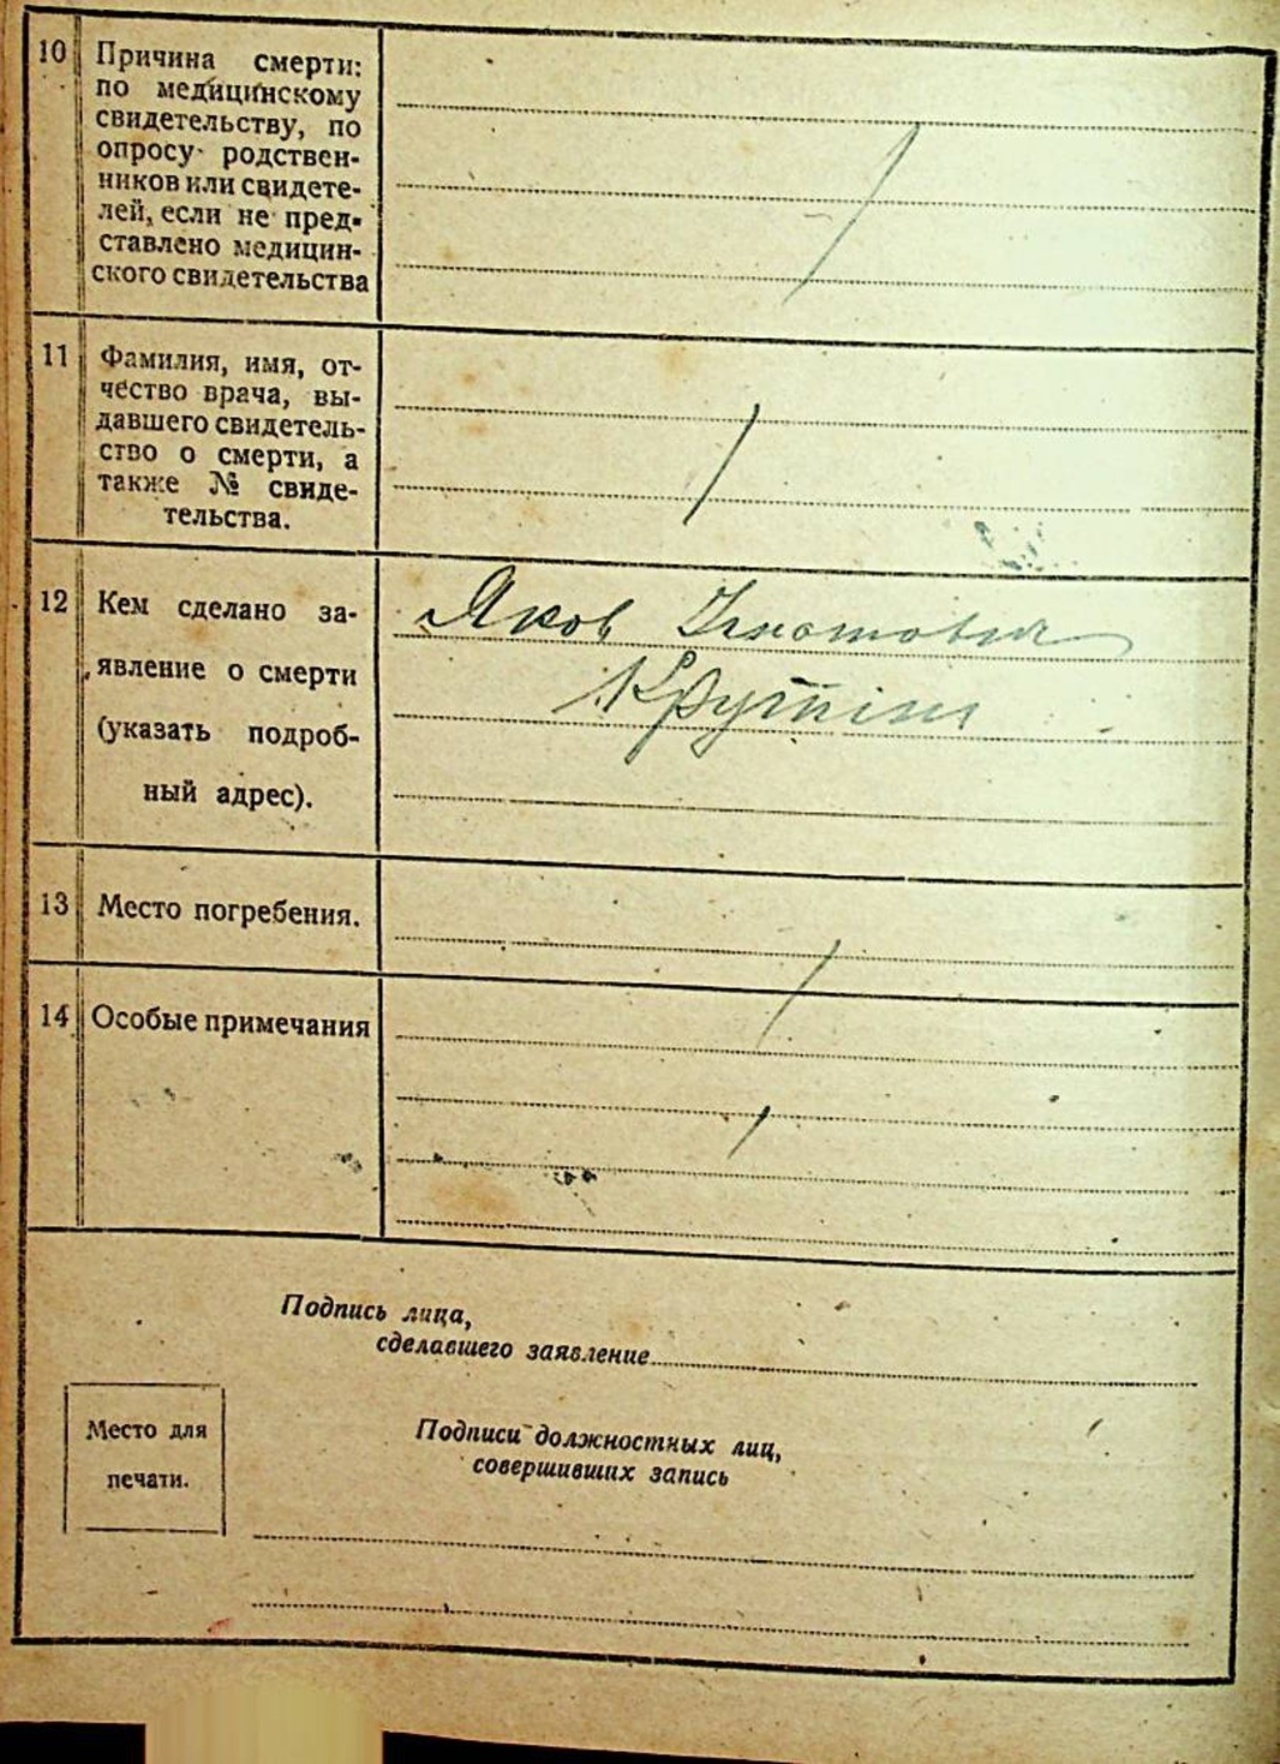 10 Причина смерти:
по медицинскому
свидетельству, по
опросу родствен-
ников или свидете-
лей, если не пред-
ставлено медицин-
ского свидетельства
11 Фамилия, имя, от-
чество врача, вы-
давшего свидетель-
ство о смерти, а
также № свиде-
тельства.
12 Кем сделано за-
явление о смерти
(указать подроб-
ный адрес).
Яков
13 Место погребения.
14 Особые примечания
Подпись лица,
сделавшего заявление
Место для
печати.
Подписи должностных лиц,
совершивших запись